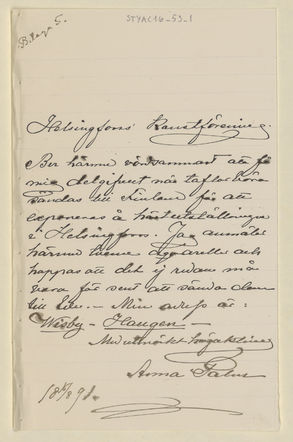 Bilaga 5.
STYAC16_53_1
Helsingfors Konstförening.
Ber härmed vördsammast att få
mig delgifvet när taflor böra
sändas till Finland för att
exponeras å höstutställningen
i Helsingfors. Jag anmäler
härmed tvenne aqvareller och
hoppas att det ej redan må
vara för sent att sända dem
till Eder. – Min adress är:
Wisby – Haugen –
Med utmärkt högaktning
Anna Palm
18 98.